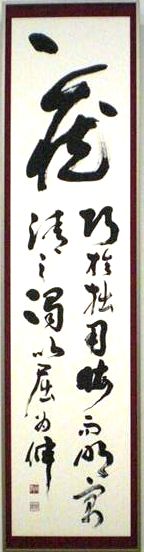 藏
巧於拙用晦而明寓
清之濁以屈為伸